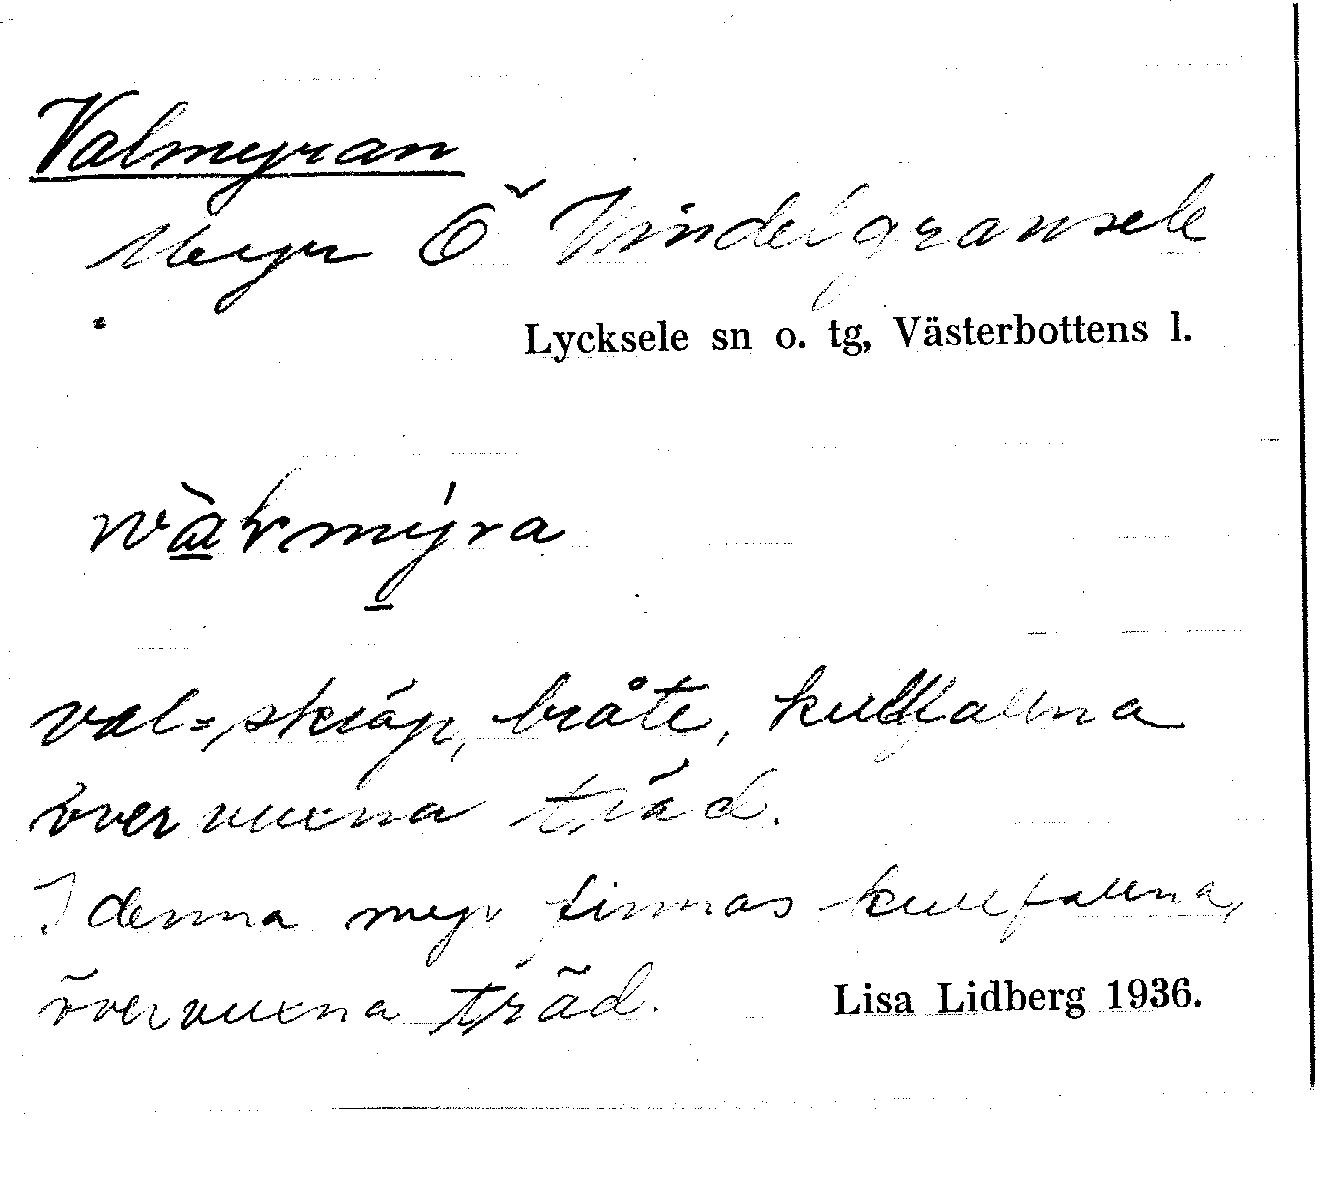 Valmyran
Myr Ö Vindelgransele
Lycksele sn o. tg, Västerbottens l.
val= skräp, bråte, kullfallna
övervuxna träd.
I denna myr finnas kullfallna,
övervuxna träd. Lisa Lidberg 1936.